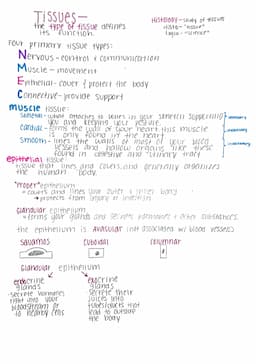 Tissues-
the type of tissue defines
its function.
Histology - study of tissues
Four primary tissue types:
Nervous - control & communication
Muscle - movement
Epithelial - cover & protect the body
Connective - provide support
muscle tissue:
skeletal - what attaches to
you and keeping your posture.
cardiac - forms the wall of your heart this muscle
is only found in the heart
smooth - lines the walls of most of your
vessels and hollow organs like these
found in digestive and urinary tract
epithelial tissue:
tissue that lines and covers and generally organizes
the human body.
"Proper" epithelium
= covers and lines your outer & inner body
→ protects from injury or infection
glandular epithelium
= forms your glands and secrets hormones & other substances
the epithelium is avascular (not associated w/ blood vessels)
squamos cuboidal columnar
Glandular epithelium
endocrine
glands
secrete hormones
right into your
bloodstream or
to nearby cells
exocrine
glands
secrete their
juices into
tubes/ducts that
lead to outside
the body